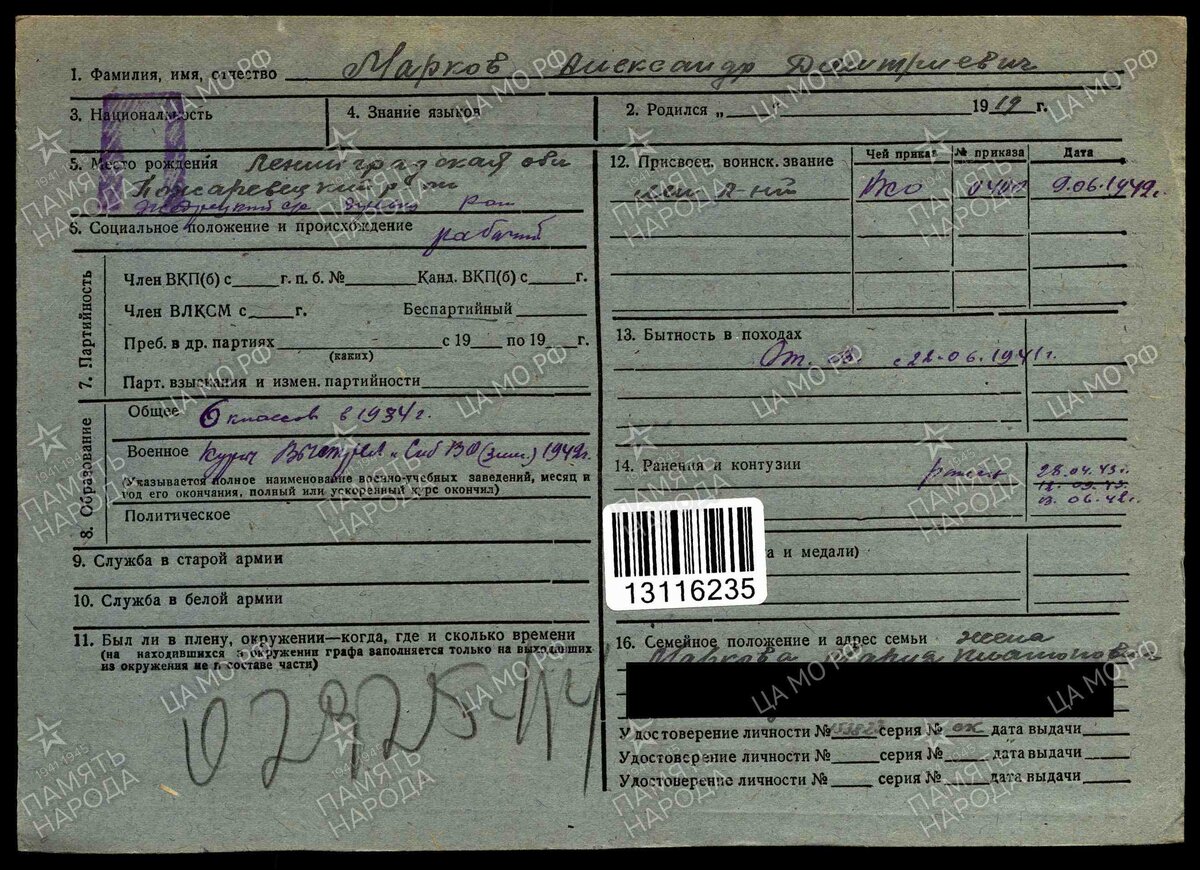 1. Фамилия, имя, отчество Марков Александр Дмитриевич
3. Национальность
4. Знание языков
2. Родился „ “ 1919 г.
5. Место рождения Ленинградская обл
Пожаревецкий р-н
6. Социальное положение и происхождение рабочий
7. Партийность
Член ВКП(б) с г. п. б. № Канд. ВКП(б) с г.
Член ВЛКСМ с г. Беспартийный
Преб. в др. партиях с 19 по 19 г.
(каких)
Парт. взыскания и измен. партийности
8. Образование
Общее 6 классов в 1934 г.
Военное Курсы Выстрел СибВО 1942г.
(Указывается полное наименование военно-учебных заведений, месяц и
год его окончания, полный или ускоренный курс окончил)
Политическое
9. Служба в старой армии
10. Служба в белой армии
11. Был ли в плену, окружении—когда, где и сколько времени
(на находившихся в окружении графа заполняется только на выходивших
из окружения не в составе части)
12. Присвоен. воинск. звание Чей приказ № приказа Дата
0400 9.06.1942г.
13. Бытность в походах
От. в. с 22.06.1941г.
14. Ранения и контузии ранен 28.04.43г.
13.06.42г.
13116235
а и медали)
16. Семейное положение и адрес семьи жена
Маркова Мария
Удостоверение личности № серия № ОК дата выдачи
Удостоверение личности № серия № дата выдачи
Удостоверение личности № серия № дата выдачи
ПАМЯТЬ НАРОДА
1941-1945
ЦА МО.РФ